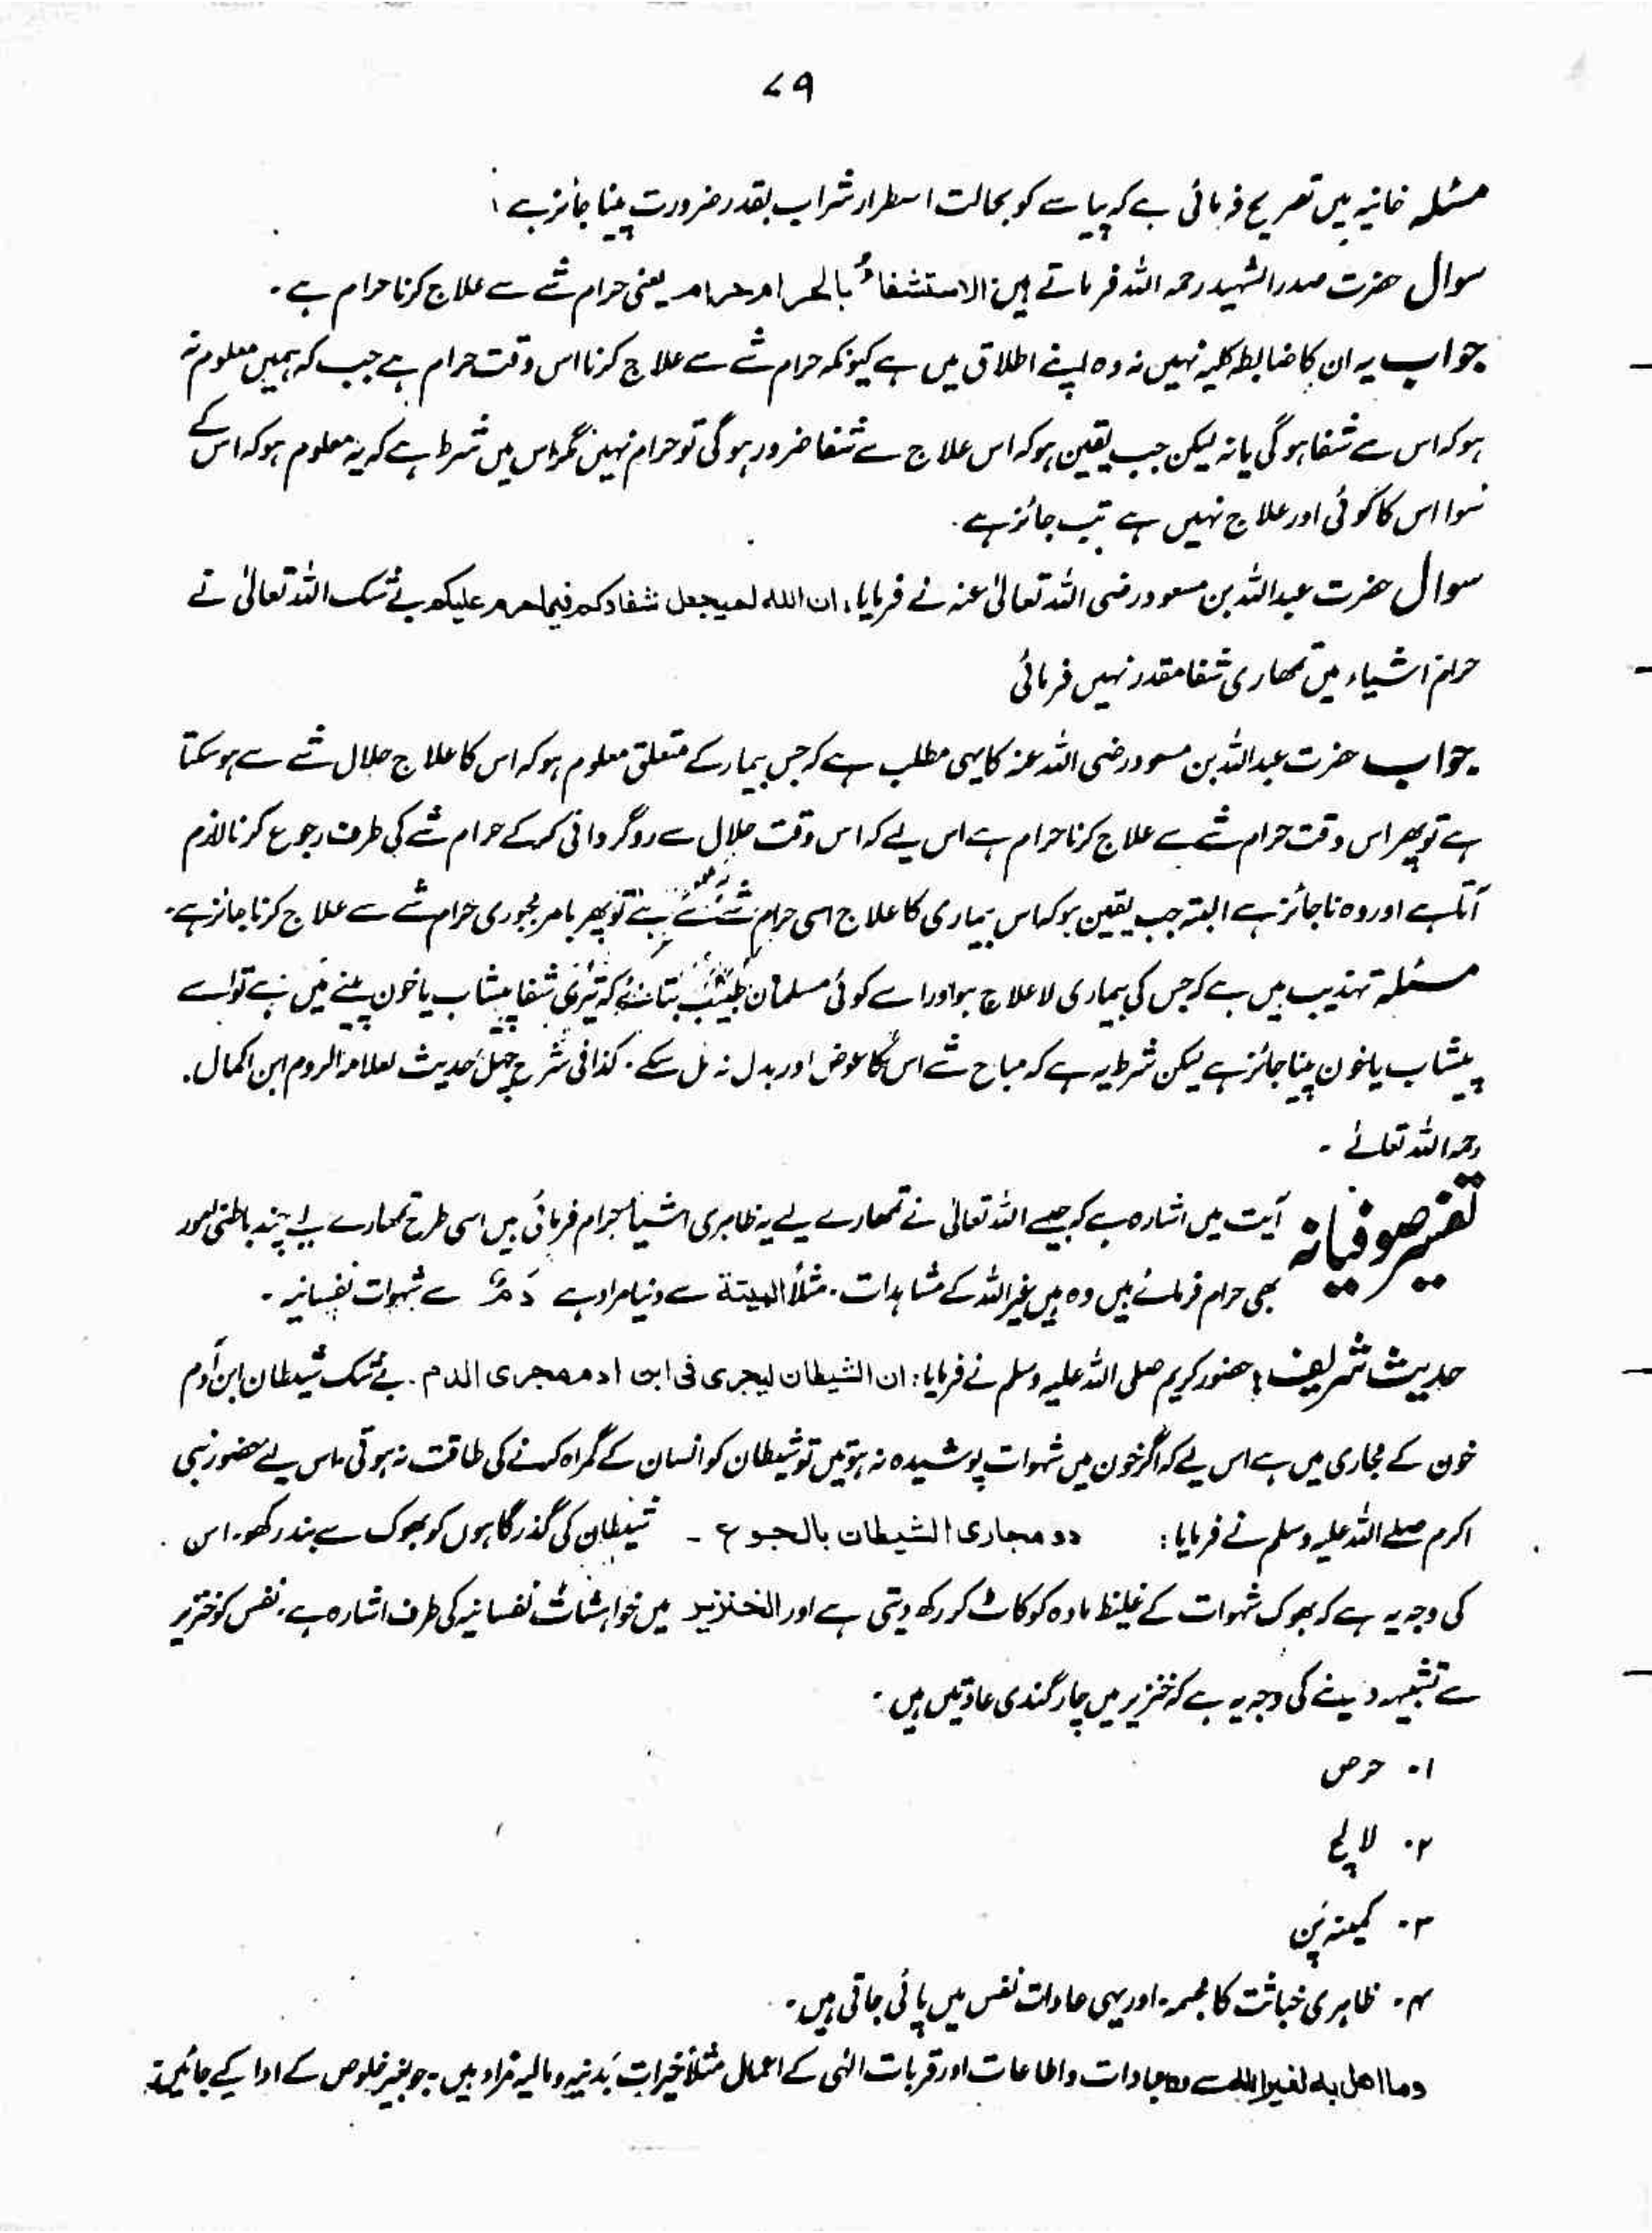 ۷۹
مسئلہ خانیہ میں تصریح فرمائی ہے کہ پیاسے کو بحالت اسطرار شراب بقدر ضرورت پینا جائز ہے ؛
سوال حضرت صدر الشہید رحمہ اللہ فرماتے ہیں الاستشفاءُ بالحرام حرام یعنی حرام شے سے علاج کرنا حرام ہے ۔
جواب یہ ان کا ضابطہ کلیہ نہیں نہ وہ اپنے اطلاق میں ہے کیونکہ حرام شے سے علاج کرنا اس وقت حرام ہے جب کہ ہمیں معلوم نہ
ہو کہ اس سے شفا ہو گی یا نہ لیکن جب یقین ہو کہ اس علاج سے شفا ضرور ہو گی تو حرام نہیں مگر اس میں شرط ہے کہ یہ معلوم ہو کہ اس کے
سوا اس کا کوئی اور علاج نہیں ہے تب جائز ہے ۔
سوال حضرت عبداللہ بن مسعود رضی اللہ تعالیٰ عنہ نے فرمایا، ان اللہ لم یجعل شفاء کم فیما حرم علیکم بے شک اللہ تعالیٰ نے
حرام اشیاء میں تمھاری شفا مقدر نہیں فرمائی
جواب حضرت عبداللہ بن مسعود رضی اللہ عنہ کا یہی مطلب ہے کہ جس بیمار کے متعلق معلوم ہو کہ اس کا علاج حلال شے سے ہو سکتا
ہے تو پھر اس وقت حرام شے سے علاج کرنا حرام ہے اس لیے کہ اس وقت حلال سے روگردانی کر کے حرام شے کی طرف رجوع کرنا لازم
آتا ہے اور وہ ناجائز ہے البتہ جب یقین ہو کہ اس بیماری کا علاج اسی حرام شے سے ہے تو پھر بامر مجبوری حرام شے سے علاج کرنا جائز ہے ۔
مسئلہ تہذیب میں ہے کہ جس کی بیماری لاعلاج ہو اور اسے کوئی مسلمان طبیب بتائے کہ تیری شفا پیشاب یا خون پینے میں ہے تو اسے
پیشاب یا خون پینا جائز ہے لیکن شرط یہ ہے کہ مباح شے اس کا عوض اور بدل نہ مل سکے ۔ کذا فی شرح چہل حدیث لعلامۃ الروم ابن الکمال ۔
رحمہ اللہ تعالےٰ ۔
تفسیر صوفیانہ آیت میں اشارہ ہے کہ جیسے اللہ تعالیٰ نے تمھارے لیے یہ ظاہری اشیاء حرام فرمائی ہیں اسی طرح تمھارے لیے چند باطنی امور
بھی حرام فرمائے ہیں وہ ہیں غیر اللہ کے مشاہدات ۔ مثلاً المیتۃ سے دنیا مراد ہے دَمٌ سے شہوات نفسانیہ ۔
حدیث شریف : حضور کریم صلی اللہ علیہ وسلم نے فرمایا : ان الشیطان لیجری فی ابن ادم مجری الدم ۔ بے شک شیطان ابن آدم
خون کے مجاری میں ہے اس لیے کہ اگر خون میں شہوات پوشیدہ نہ ہوتیں تو شیطان کو انسان کے گمراہ کرنے کی طاقت نہ ہوتی ۔ اس لیے حضور نبی
اکرم صلے اللہ علیہ وسلم نے فرمایا : دد مجاری الشیطان بالجوع ۔ شیطان کی گذرگاہوں کو بھوک سے بند رکھو ۔ اس
کی وجہ یہ ہے کہ بھوک شہوات کے غلیظ مادہ کو کاٹ کر رکھ دیتی ہے اور الخنزیر میں خواہشات نفسانیہ کی طرف اشارہ ہے ۔ نفس کو خنزیر
سے تشبیہہ دینے کی وجہ یہ ہے کہ خنزیر میں چار گندی عادتیں ہیں :
۱۔ حرص
۲۔ لالچ
۳۔ کمینہ پَن
۴۔ ظاہری خباثت کا مجسمہ ۔ اور یہی عادات نفس میں پائی جاتی ہیں ۔
وما اھل بہ لغیر اللہ سے وہ عبادات و اطاعات اور قربات الٰہی کے اعمال مثلاً خیرات بَدنیہ و مالیہ مراد ہیں ۔ جو بغیر خلوص کے ادا کیے جائیں ۔